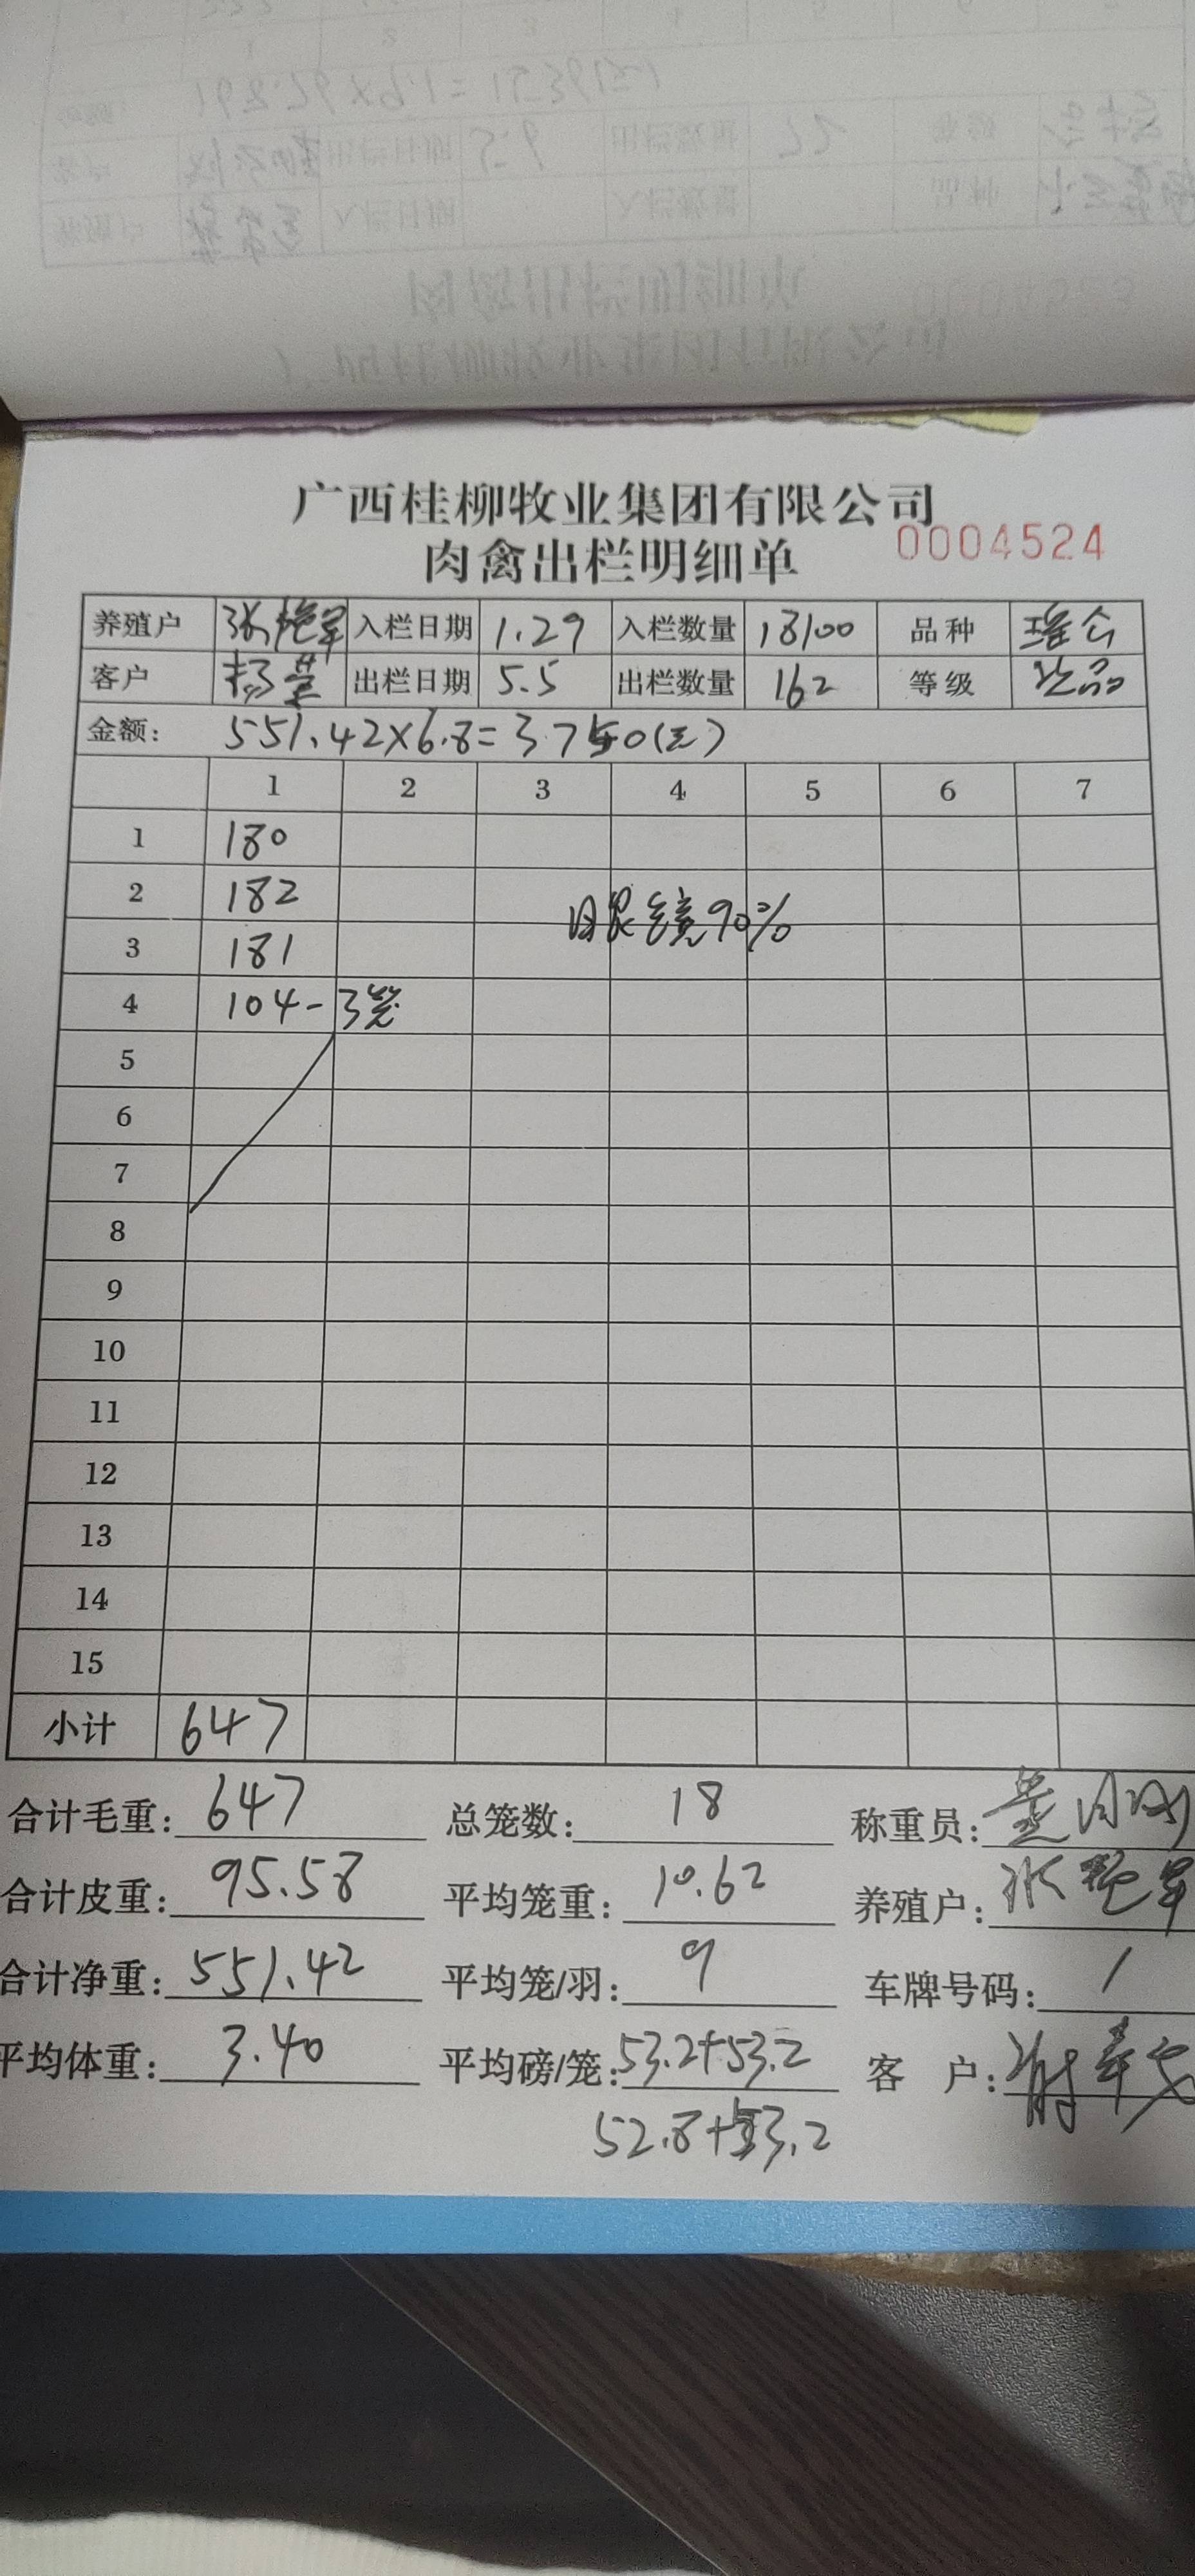 广西桂柳牧业集团有限公司
肉禽出栏明细单 0004524
养殖户 张艳军 入栏日期 1.29 入栏数量 18100 品种 瑶公
客户 杨 出栏日期 5.5 出栏数量 162 等级 次品
金额: 551.42×6.8=3750(元)
1 2 3 4 5 6 7
1 180
2 182
眼镜90%
3 181
4 104-3笼
5
6
7
8
9
10
11
12
13
14
15
小计 647
合计毛重: 647 总笼数: 18 称重员:
合计皮重: 95.58 平均笼重: 10.62 养殖户: 张艳军
合计净重: 551.42 平均笼/羽: 9 车牌号码: /
平均体重: 3.40 平均磅/笼: 53.2+53.2 客 户:
52.8+53.2